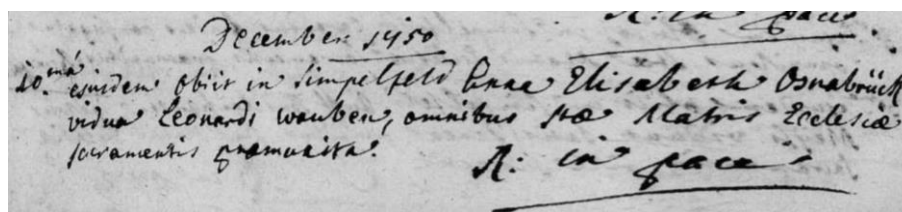 R: in pace
December 1750
10.ma ejusdem obiit in Simpelfeld Anna Elisabeth Osnabrück
vidua Leonardi wauben, omnibus stæ Matris Ecclesiæ
sacramentis præmunita.
R: in pace